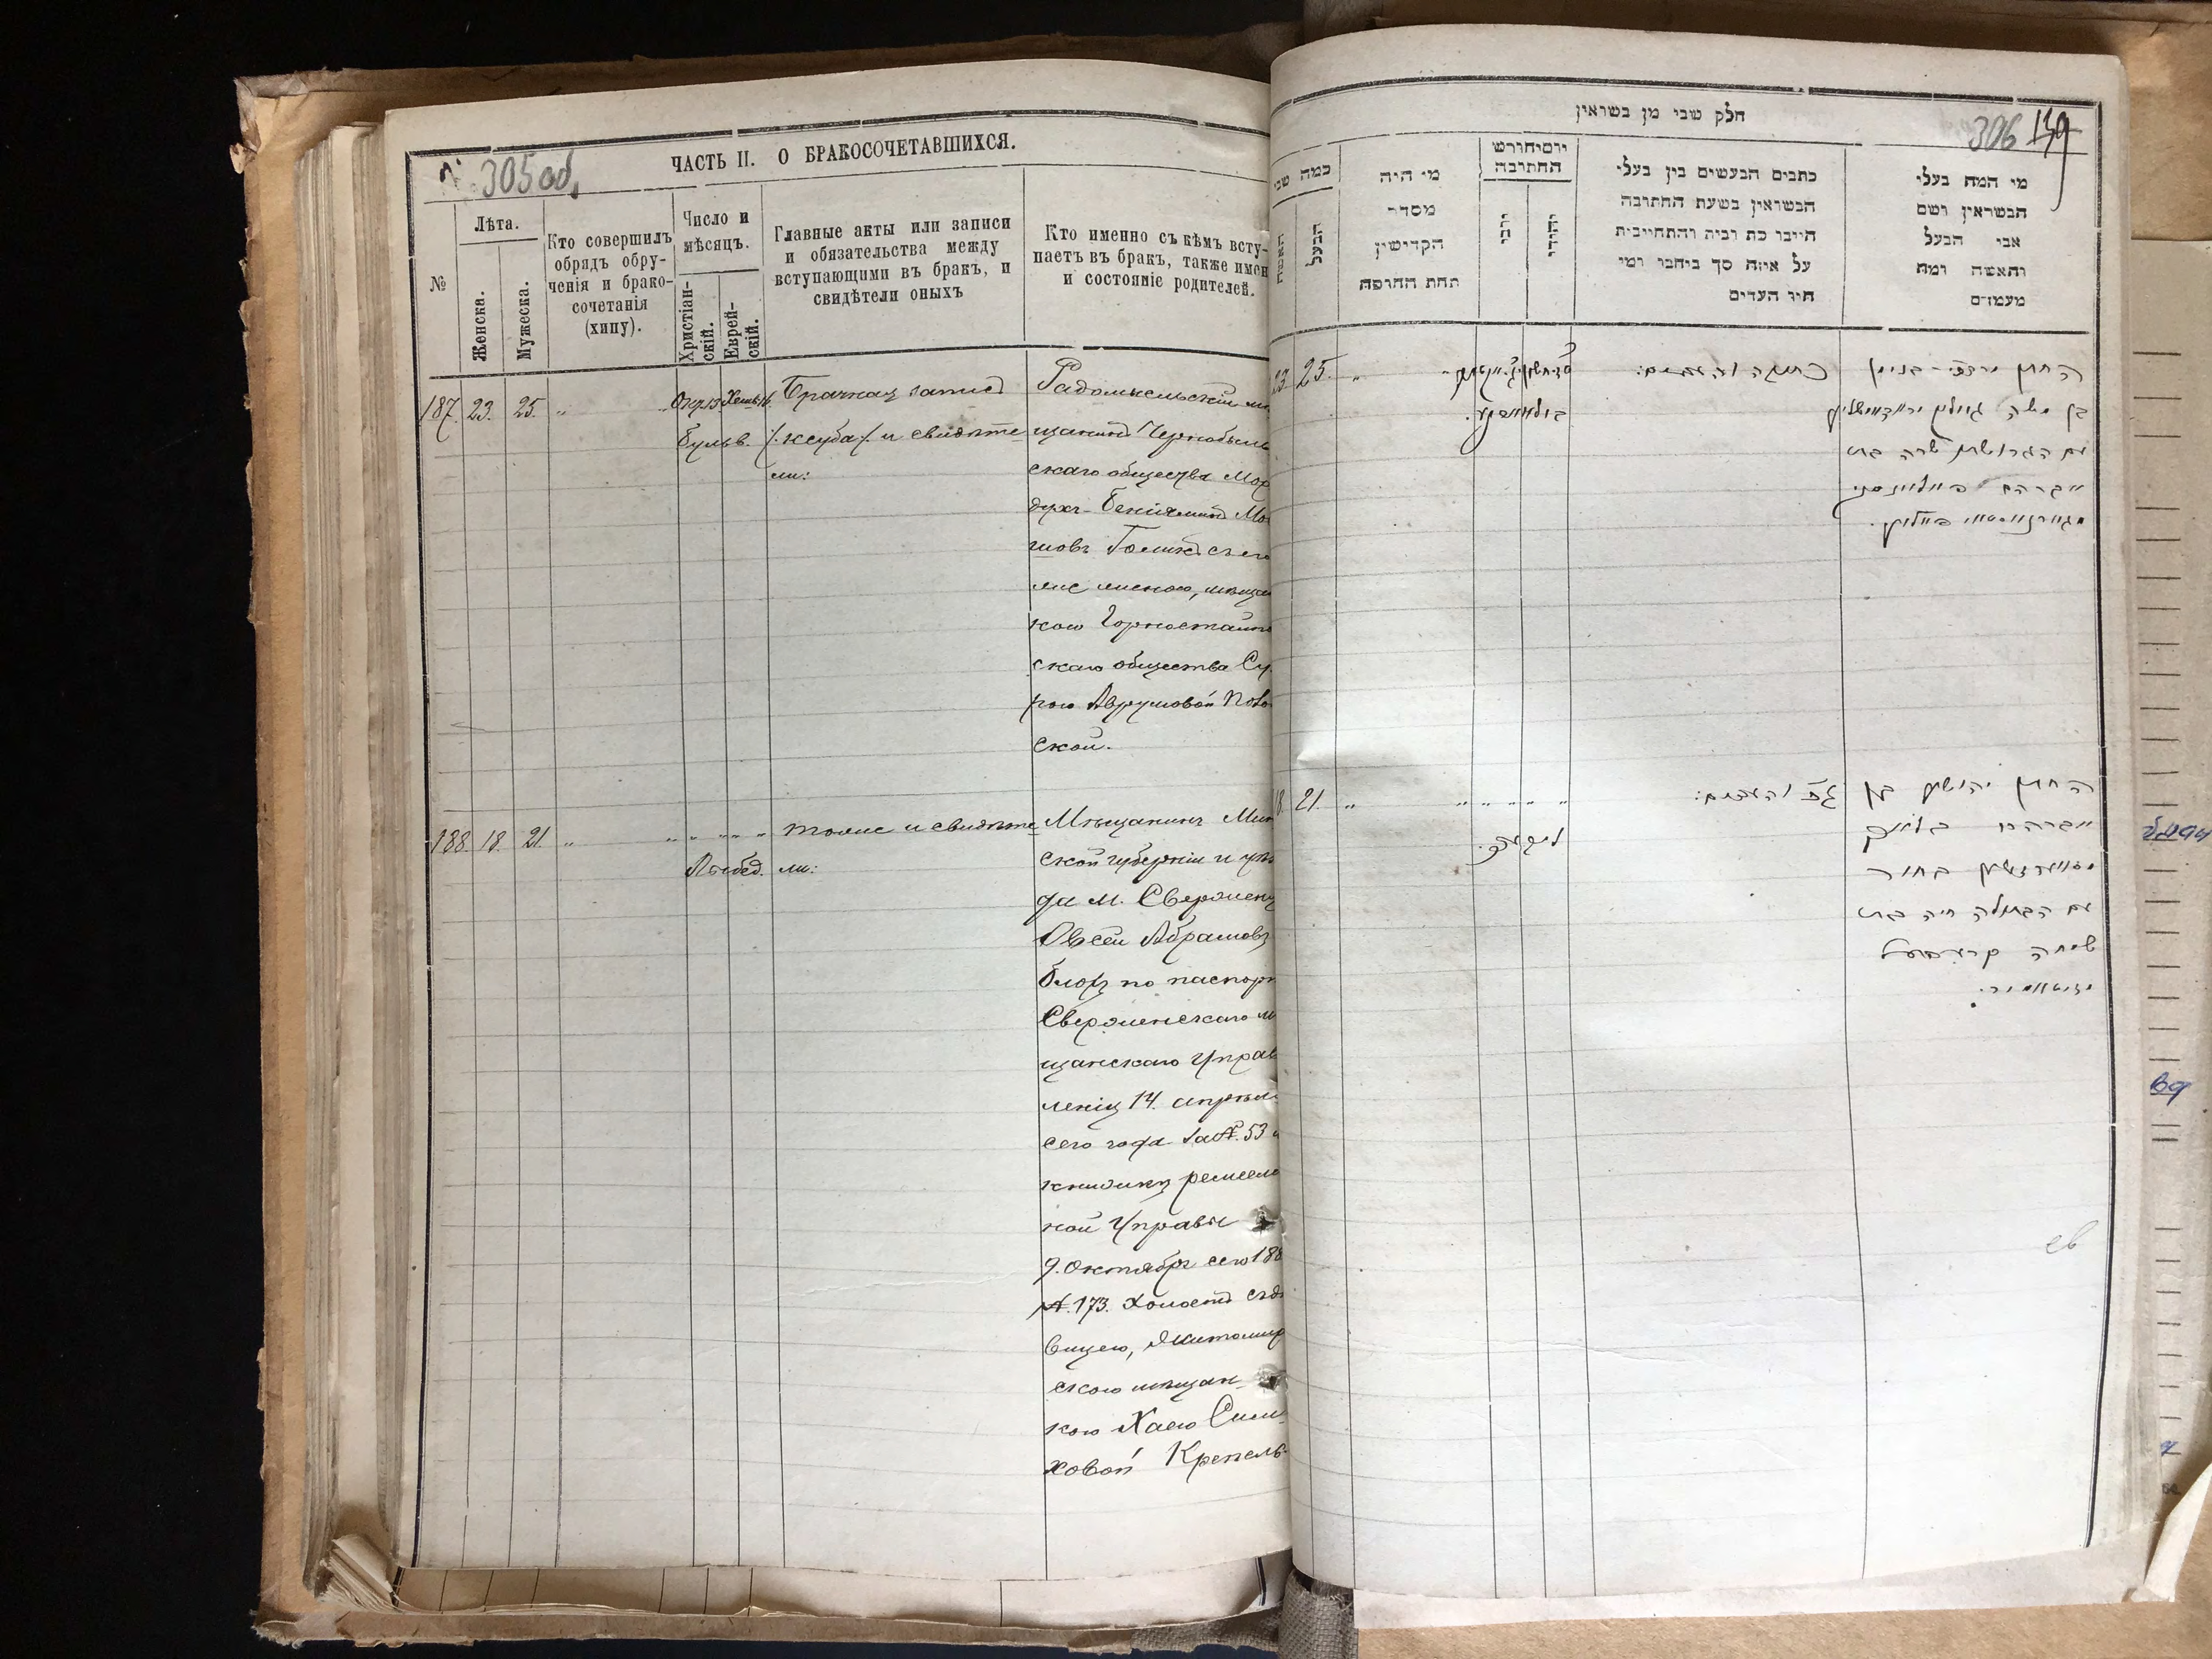 305 об,
ЧАСТЬ II. О БРАКОСОЧЕТАВШИХСЯ.
№
Лѣта.
Женска.
Мужеска.
Кто совершилъ
обрядъ обру-
ченія и брако-
сочетанія
(хипу).
Число и
мѣсяцъ.
Христіан-
скій.
Еврей-
скій.
Главные акты или записи
и обязательства между
вступающими въ бракъ, и
свидѣтели оныхъ
Кто именно съ кѣмъ всту-
паетъ въ бракъ, также имен
и состояніе родителей.
187. 23. 25. „ „
Окт. 13 Хешв. 16.
бульв.
Брачная запись
/. ксуба ./ и свидѣте
ли:
Радомысльскій мѣ
щанинъ Чернобыль
скаго общества Мор
духъ-Беніяминъ Мо
шовъ
кою Горностайпо
скаго общества Су
рою Аврумовой
ской.
188. 18. 21. „ „ „ „ „
Лыбед.
тоже и свидѣте
ли:
Мѣщанинъ Мин
ской губерніи и уѣз
да м. Свержень
Овсей Абрамовъ
блохъ по паспорт
Сверженскаго м
щанскаго Управ
ленія 14. апрѣл
сего года за № 53 и
книжки ремесле
ной Управы
9. Октября сего 188
№. 173. холостъ съ дѣ
вицею, Житомир
скою мѣщан
кою Хаею Сим
ховой Крепель
306 139
חלק שני מן נשואין
כמה שני
האשה
הבעל
מי היה
מסדר
הקדישין
תחת החופה
יוםיחודש
החתונה
נוצרי
יהודי
כתבים הנעשים בין בעלי
הנשואין בשעת החתונה
היינו כת וביה והתחייבות
על איזה סך ביחבו ומי
היו העדים
מי המה בעלי
הנשואין ושם
אבי הבעל
והאשה ומה
מעמדם
23 25. „
כתובה והעדים:
החתן מרדכי-בנימן
בן משה
עם הגרושה שרה בת
אברהם
18. 21. „ „ „ „ „ „
כנ״ל והעדים:
החתן יהושע בן
אברהם בלאך
מסווערזשען בחור
עם הבתולה חיה בת
שמחה קרעפעל
מזיטאמיר.